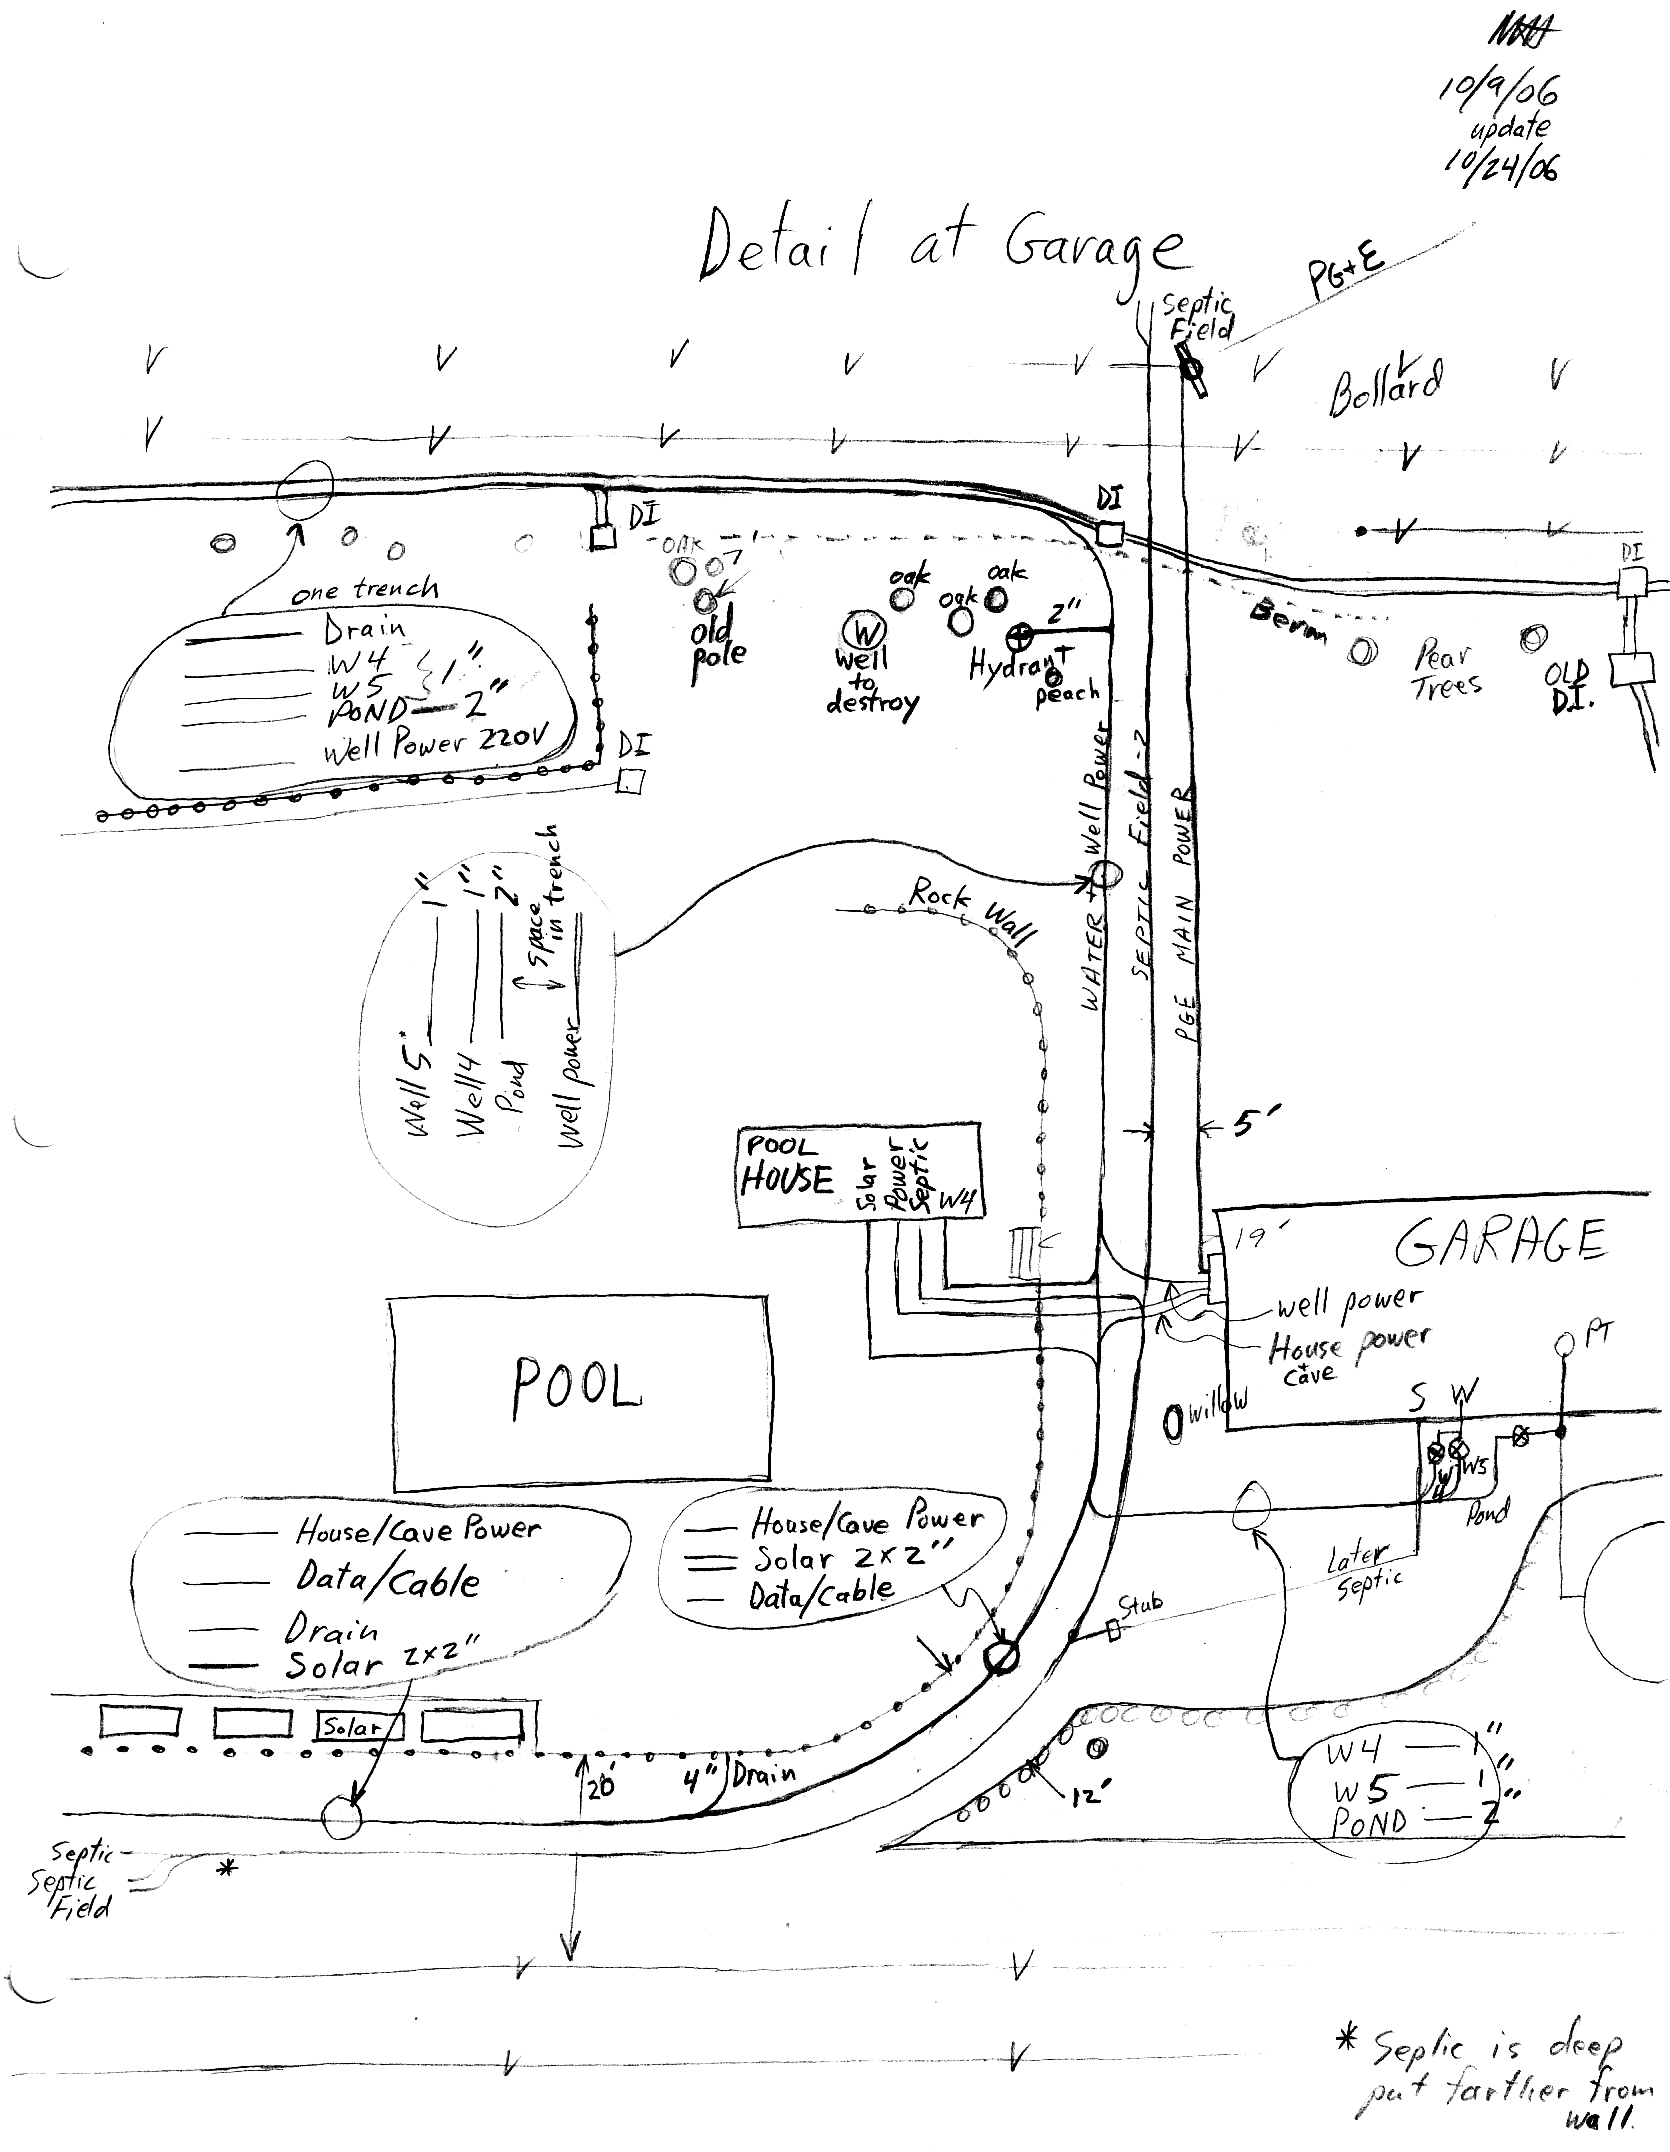 10/9/06
update
10/24/06
Detail at Garage
PG+E
Septic
Field
Bollard
DI
DI
DI
oak
?
oak
oak
oak
old
pole
W
well
to
destroy
2"
Hydrant
peach
Berm
Pear
Trees
OLD
D.I.
one trench
Drain
W4
W5
1"
POND — 2"
Well Power 220V
DI
WATER + Well Power
SEPTIC Field -2
PGE MAIN POWER
Rock Wall
Well 5 1"
Well 4 1"
Pond 2"
Space
in trench
Well power
5'
POOL
HOUSE
Solar
Power
Septic
W4
19'
GARAGE
well power
House power
+
cave
PT
Willow
S W
W4
W5
Pond
POOL
House/Cave Power
Data/Cable
Drain
Solar 2x2"
House/Cave Power
Solar 2x2"
Data/Cable
Later
Septic
Stub
Solar
20'
4" Drain
12'
W4 — 1"
W5 — 1"
POND — 2"
Septic
Septic
Field
*
* Septic is deep
put farther from
wall.